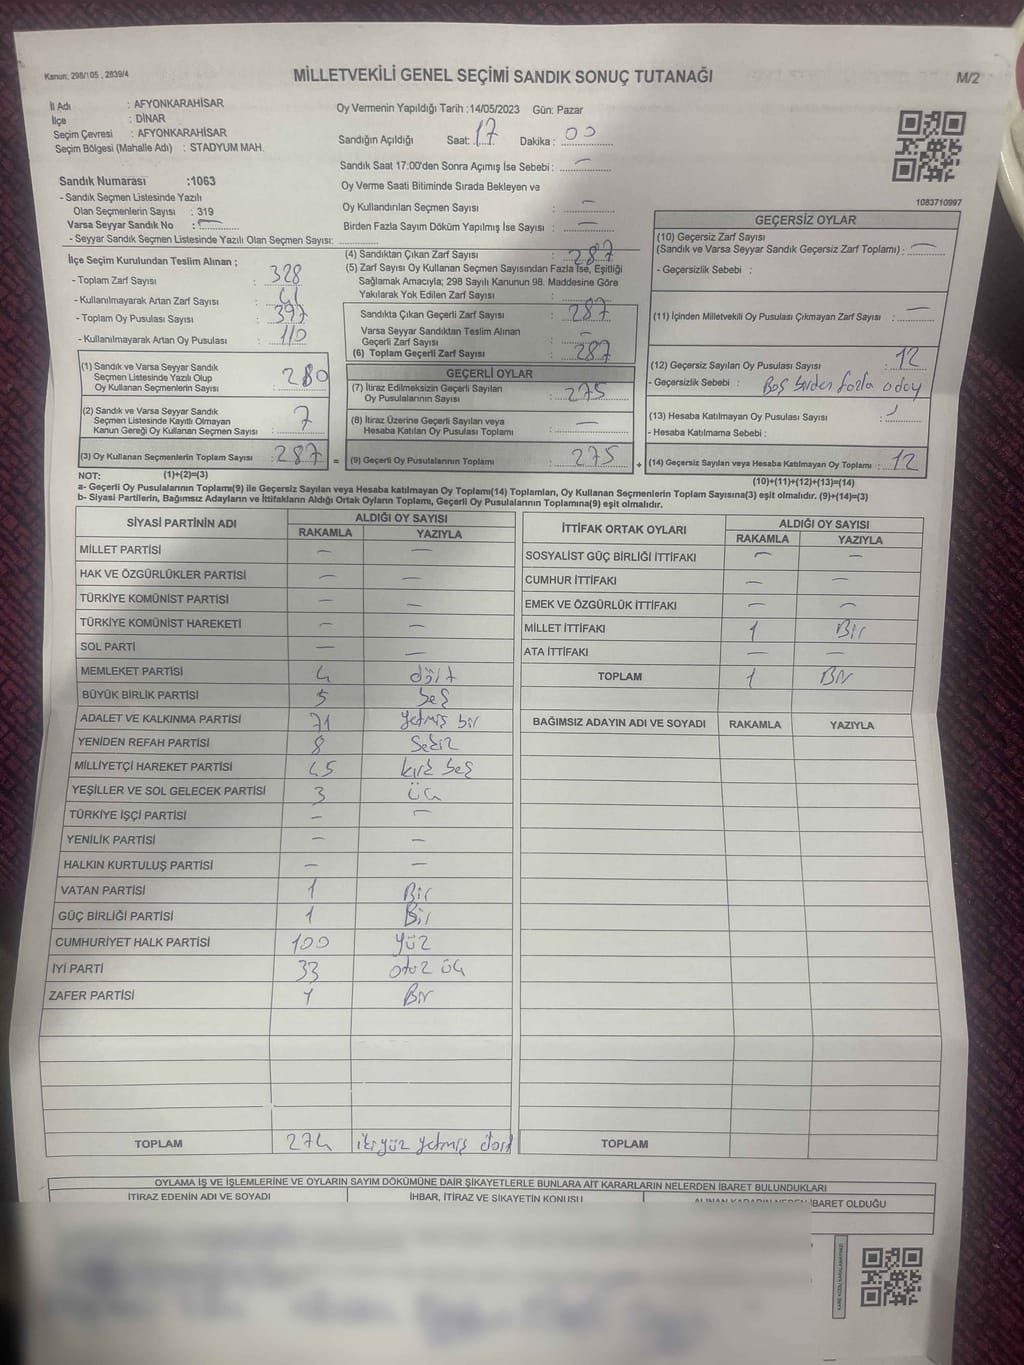 Kanun; 298/105 , 2839/4
MİLLETVEKİLİ GENEL SEÇİMİ SANDIK SONUÇ TUTANAĞI
M/2
İl Adı : AFYONKARAHİSAR
İlçe : DİNAR
Seçim Çevresi : AFYONKARAHİSAR
Seçim Bölgesi (Mahalle Adı) : STADYUM MAH.
Oy Vermenin Yapıldığı Tarih :14/05/2023 Gün: Pazar
Sandığın Açıldığı Saat: 17 Dakika : 00
Sandık Saat 17:00'den Sonra Açımış İse Sebebi : —
Oy Verme Saati Bitiminde Sırada Bekleyen ve
Oy Kullandırılan Seçmen Sayısı : —
Birden Fazla Sayım Döküm Yapılmış İse Sayısı : —
1083710997
Sandık Numarası :1063
- Sandık Seçmen Listesinde Yazılı
Olan Seçmenlerin Sayısı : 319
Varsa Seyyar Sandık No : —
- Seyyar Sandık Seçmen Listesinde Yazılı Olan Seçmen Sayısı:
İlçe Seçim Kurulundan Teslim Alınan ;
- Toplam Zarf Sayısı : 328
- Kullanılmayarak Artan Zarf Sayısı : 41
- Toplam Oy Pusulası Sayısı : 397
- Kullanılmayarak Artan Oy Pusulası : 110
(1) Sandık ve Varsa Seyyar Sandık
Seçmen Listesinde Yazılı Olup
Oy Kullanan Seçmenlerin Sayısı : 280
(2) Sandık ve Varsa Seyyar Sandık
Seçmen Listesinde Kayıtlı Olmayan
Kanun Gereği Oy Kullanan Seçmen Sayısı : 7
(3) Oy Kullanan Seçmenlerin Toplam Sayısı : 287 =
(4) Sandıktan Çıkan Zarf Sayısı : 287
(5) Zarf Sayısı Oy Kullanan Seçmen Sayısından Fazla İse, Eşitliği
Sağlamak Amacıyla; 298 Sayılı Kanunun 98. Maddesine Göre
Yakılarak Yok Edilen Zarf Sayısı :
Sandıkta Çıkan Geçerli Zarf Sayısı : 287
Varsa Seyyar Sandıktan Teslim Alınan
Geçerli Zarf Sayısı : —
(6) Toplam Geçerli Zarf Sayısı : 287
GEÇERLİ OYLAR
(7) İtiraz Edilmeksizin Geçerli Sayılan
Oy Pusulalarının Sayısı : 275
(8) İtiraz Üzerine Geçerli Sayılan veya
Hesaba Katılan Oy Pusulası Toplamı : —
(9) Geçerli Oy Pusulalarının Toplamı : 275 +
GEÇERSİZ OYLAR
(10) Geçersiz Zarf Sayısı
(Sandık ve Varsa Seyyar Sandık Geçersiz Zarf Toplamı) : —
- Geçersizlik Sebebi :
(11) İçinden Milletvekili Oy Pusulası Çıkmayan Zarf Sayısı : —
(12) Geçersiz Sayılan Oy Pusulası Sayısı : 12
- Geçersizlik Sebebi : Boş birden fazla aday
(13) Hesaba Katılmayan Oy Pusulası Sayısı :
- Hesaba Katılmama Sebebi :
(14) Geçersiz Sayılan veya Hesaba Katılmayan Oy Toplamı : 12
NOT: (1)+(2)=(3)
(10)+(11)+(12)+(13)=(14)
a- Geçerli Oy Pusulalarının Toplamı(9) ile Geçersiz Sayılan veya Hesaba katılmayan Oy Toplamı(14) Toplamları, Oy Kullanan Seçmenlerin Toplam Sayısına(3) eşit olmalıdır. (9)+(14)=(3)
b- Siyasi Partilerin, Bağımsız Adayların ve İttifakların Aldığı Ortak Oyların Toplamı, Geçerli Oy Pusulalarının Toplamına(9) eşit olmalıdır.
SİYASİ PARTİNİN ADI
ALDIĞI OY SAYISI
RAKAMLA YAZIYLA
MİLLET PARTİSİ — —
HAK VE ÖZGÜRLÜKLER PARTİSİ — —
TÜRKİYE KOMÜNİST PARTİSİ — —
TÜRKİYE KOMÜNİST HAREKETİ — —
SOL PARTİ — —
MEMLEKET PARTİSİ 4 dört
BÜYÜK BİRLİK PARTİSİ 5 beş
ADALET VE KALKINMA PARTİSİ 71 yetmiş bir
YENİDEN REFAH PARTİSİ 8 Sekiz
MİLLİYETÇİ HAREKET PARTİSİ 45 kırk beş
YEŞİLLER VE SOL GELECEK PARTİSİ 3 üç
TÜRKİYE İŞÇİ PARTİSİ — —
YENİLİK PARTİSİ — —
HALKIN KURTULUŞ PARTİSİ — —
VATAN PARTİSİ 1 Bir
GÜÇ BİRLİĞİ PARTİSİ 1 Bir
CUMHURİYET HALK PARTİSİ 100 yüz
İYİ PARTİ 33 otuz üç
ZAFER PARTİSİ 1 Bir
TOPLAM 274 ikiyüz yetmiş dört
İTTİFAK ORTAK OYLARI
ALDIĞI OY SAYISI
RAKAMLA YAZIYLA
SOSYALİST GÜÇ BİRLİĞİ İTTİFAKI — —
CUMHUR İTTİFAKI — —
EMEK VE ÖZGÜRLÜK İTTİFAKI — —
MİLLET İTTİFAKI 1 Bir
ATA İTTİFAKI — —
TOPLAM 1 Bir
BAĞIMSIZ ADAYIN ADI VE SOYADI RAKAMLA YAZIYLA
TOPLAM
OYLAMA İŞ VE İŞLEMLERİNE VE OYLARIN SAYIM DÖKÜMÜNE DAİR ŞİKAYETLERLE BUNLARA AİT KARARLARIN NELERDEN İBARET BULUNDUKLARI
İTİRAZ EDENİN ADI VE SOYADI
İHBAR, İTİRAZ VE ŞİKAYETİN KONUSU
ALINAN KARARIN NEDEN İBARET OLDUĞU